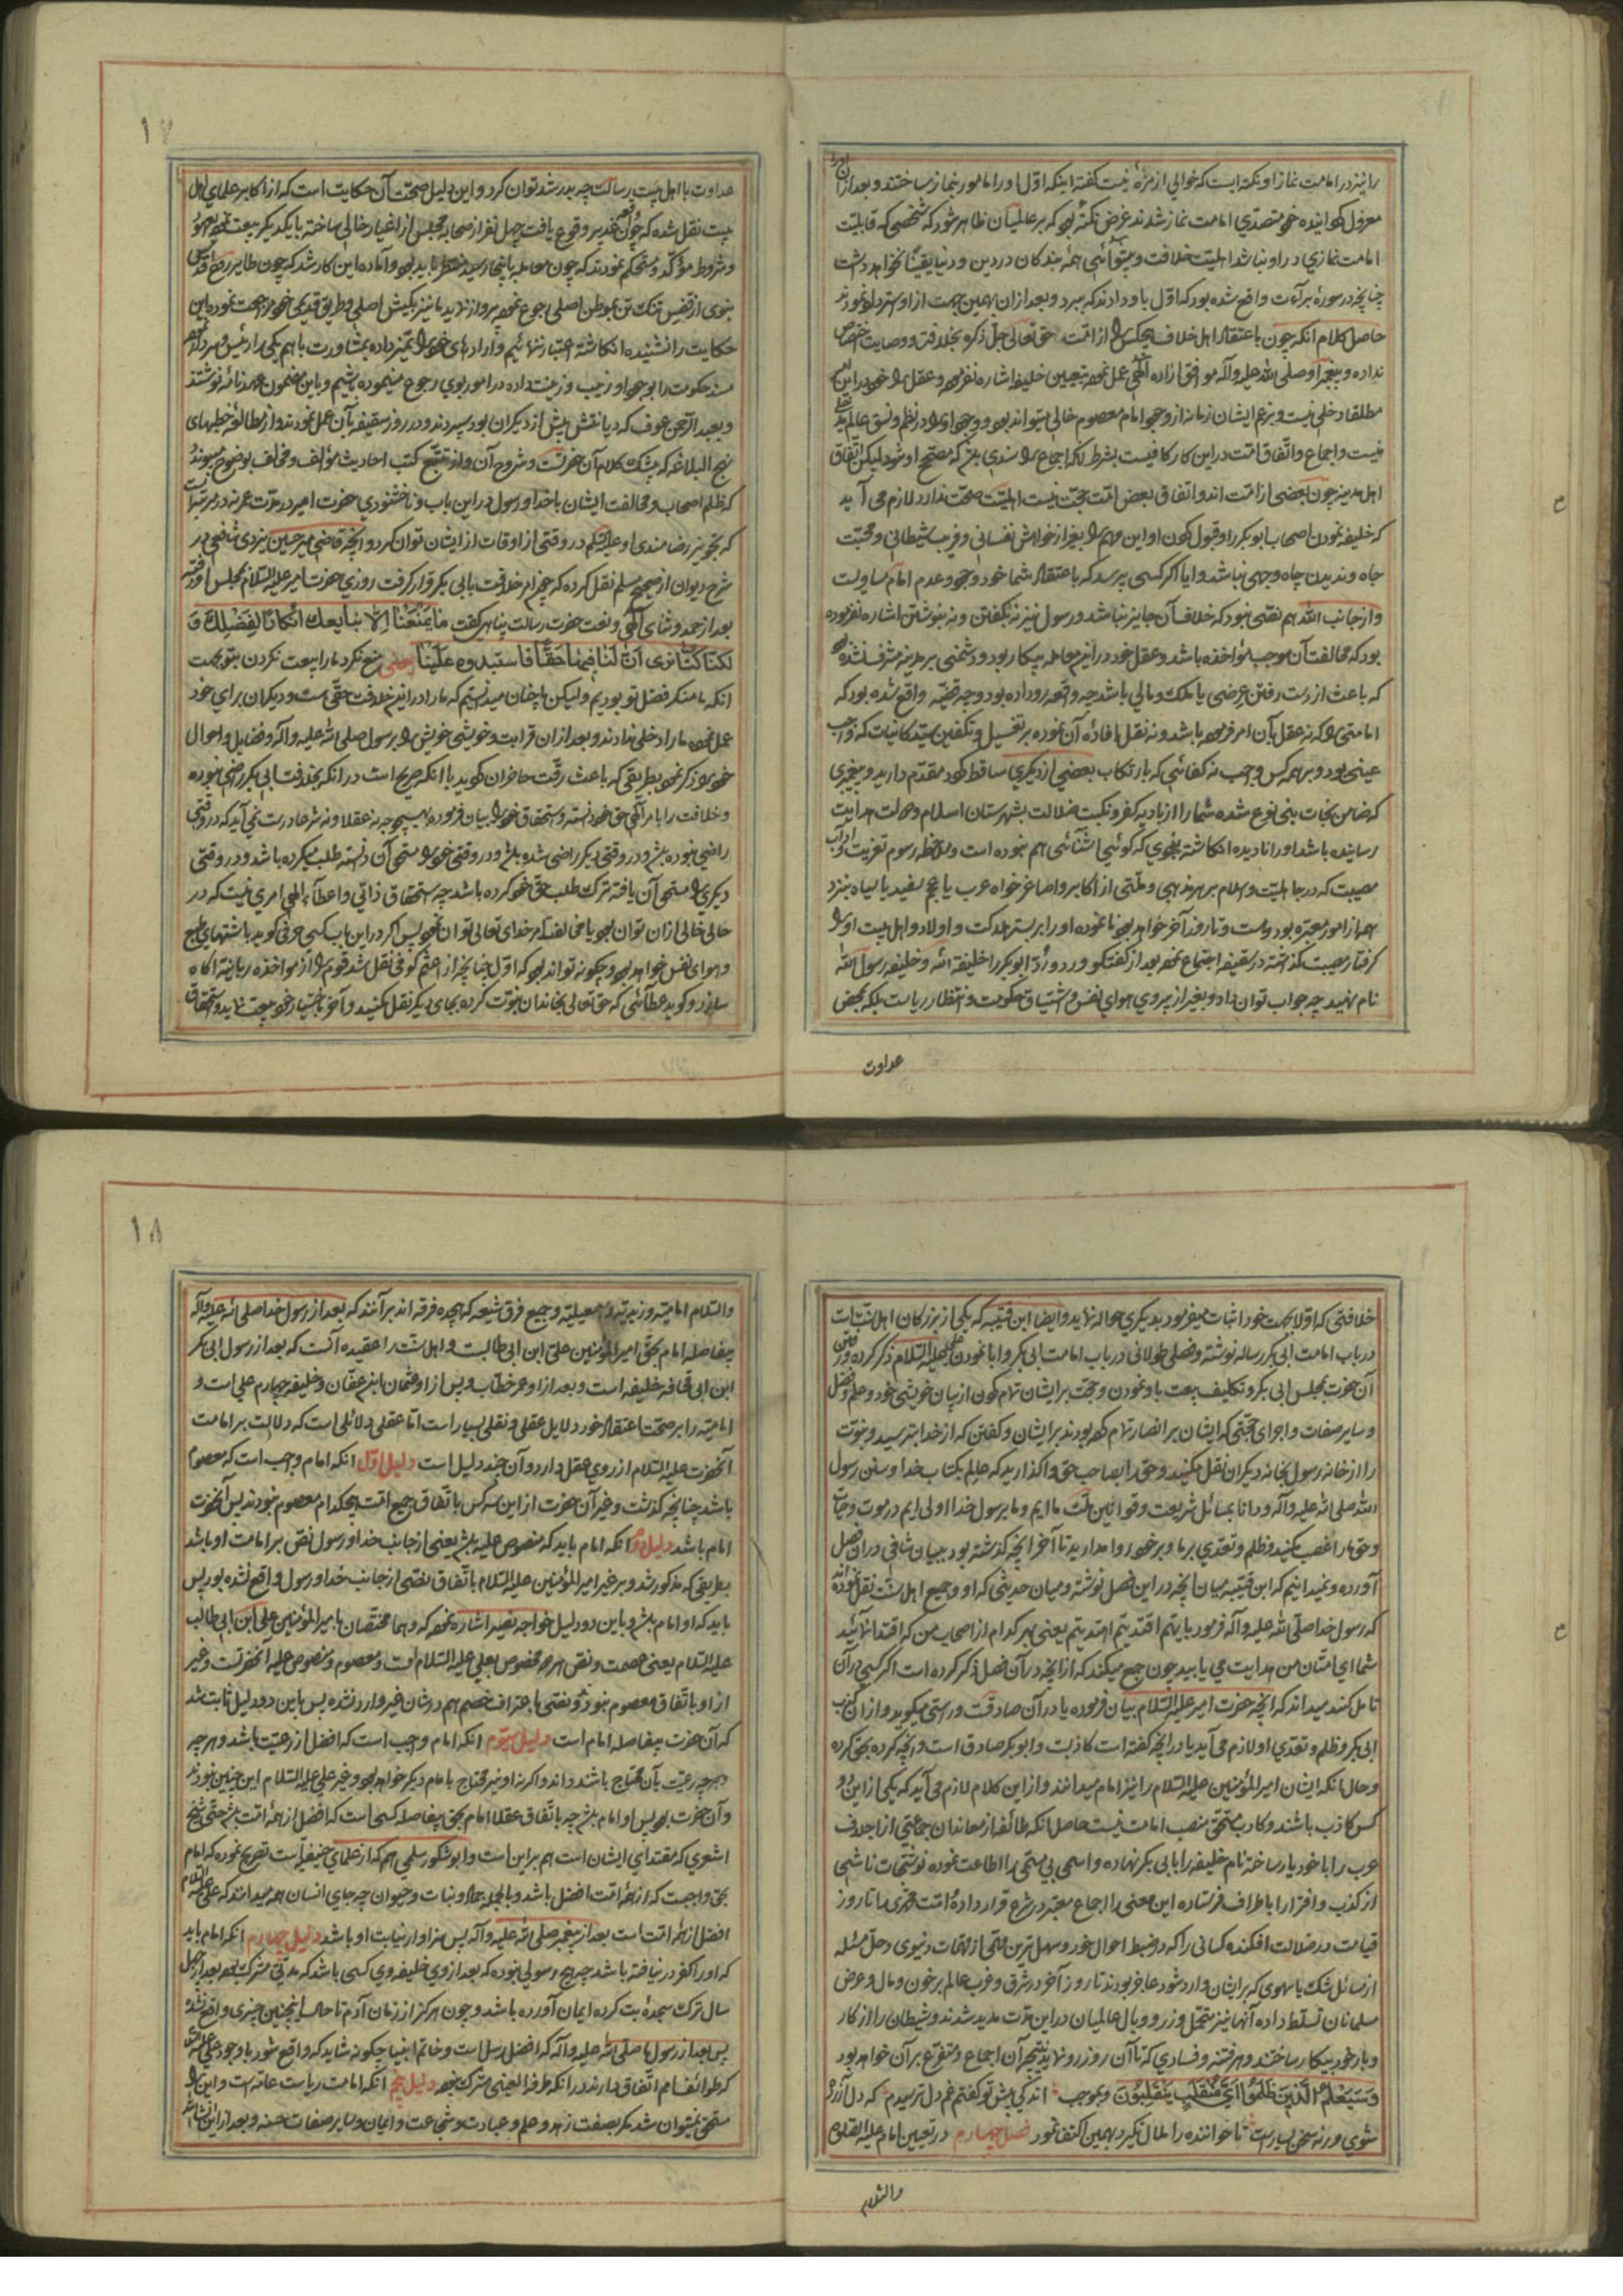 را نیز در امامت نماز او نکته ایست که خوالی از مزهٔ نیست گفته اینکه اول او را مامور بنماز ساختند و بعد از آن او را
معزول کرده خود متصدی امامت نماز شدند غرض نکته بود که بر عالمیان ظاهر شود که شخصی که قابلیت
امامت نمازی در او نباشد اهلیت خلافت و پیشوائی همهٔ بندگان در دین و دنیا یقینا نخواهد داشت
چنانچه در سورهٔ برآءت واقع شده بود که اول باو دادند که ببرد و بعد از آن بهمین جهت از او استرداد نمودند
حاصل کلام انکه چون باعتقاد اهل خلاف هیچکس را از امت حق تعالی جل ذکره بخلافت و وصایت اختصاص
نداده و پیغمبر او صلی الله علیه وآله موافق ارادهٔ الهی عمل نموده بتعیین خلیفه اشاره نفرموده و عقل را خود در این امر
مطلقا دخلی نیست و بزعم ایشان زمانه از وجود امام معصوم خالی میتواند بود و وجود او را در نظم و نسق عالم دخلی
نیست و اجماع و اتفاق امت در این کار کافیست بشرط انکه اجماع را سندی باشد که مصحح او شود لیکن اتفاق
اهل مدینه چون بعضی از امت اند و اتفاق بعض امت حجت نیست اهلیت صحت ندارد لازم می آید
که خلیفه نمودن اصحاب ابوبکر را و قبول کردن او این مهم را بغیر از خواهش نفسانی و فریب شیطانی و محبت
جاه و ندیدن چاه وجهی نباشد و ایا اگر کسی پرسد که باعتقاد شما خود وجود و عدم امام مساویست
و از جانب الله هم نصی نبود که خلاف آن جایز نباشد و رسول نیز نه بگفتن و نه بنوشتن اشاره نفرموده
بود که مخالفت آن موجب مؤاخذه باشد و عقل خود در این معامله بیکار بود و دشمنی بر مدینه مشرف نشده بود
که باعث از دست رفتن عرضی یا ملک و مالی باشد چه واقعه رو داده بود و چه قضیه واقع شده بود که
امامتی را که نه عقل بآن امر فرموده باشد و نه نقل افادهٔ آن نموده بر تغسیل و تکفین سید کاینات که واجب
عینی بود و بر همه کس واجب نه کفائی که بارتکاب بعضی از دیگری ساقط گردد مقدم دارید و پیغمبری
که ضامن نجات بنی نوع شده شما را از بادیه کفر و نکبت ضلالت بشهرستان اسلام و دولت هدایت
رسانیده باشد او را نادیده انکاشته بنحوی که کوئیا اشنائی هم نبوده است و ملاحظه رسوم تعزیت و آداب
مصیبت که در جاهلیت و اسلام بر هر مذهبی و ملتی از اکابر و اصاغر خواه عرب یا عجم سفید یا سیاه بنزد
همه از امور معتبره بوده است و تا روز آخر خواهد بود نا نموده او را بر بستر هلاکت و اولاد و اهل بیت او را
گرفتار مصیبت گذاشته در سقیفه اجتماع نموده بعد از گفتگو و رد و بدل ابوبکر را خلیفة الله و خلیفه رسول الله
نام نهید چه جواب توان داد و بغیر از پیروی هوای نفس و اشتیاق حکومت و انتظار ریاست بلکه بمحض
عداوت
۱۷
عداوت با اهل بیت رسالت چه بدر شد توان کرد و این دلیل صحت آن حکایت است که از اکابر علمای اهل
بیت نقل شده که چون غدیر وقوع یافت چهل نفر از صحابه مجلس از اغیار خالی ساخته با یکدیگر بیعت نموده عهود
و شروط مؤکد و مستحکم نمودند که چون معامله باینجا رسید منتظر باید بود و آماده این کار شد که چون طایر روح اقدس
نبوی از قفس تنک تن بموطن اصلی رجوع نموده پرواز نماید ما نیز بکیش اصلی و طریق قدیمی خود مراجعت نموده این
حکایت را نشنیده انکاشته اعتبار ننمائیم و ارادهای خود را تمیز داده بمشاورت با هم یکی را رئیس و سرکرده نموده
مسند حکومت را بوجود او زیب و زینت داده در امور بوی رجوع مینموده باشیم و باین مضمون عهدنامه نوشتند
و بعبد الرحمن عوف که دیانتش بیش از دیگران بود سپردند و در روز سقیفه بآن عمل نمودند و از مطالعه خطبهای
نهج البلاغه که بیشک کلام آن حضرتست و شروح آن و از تتبع کتب احادیث مؤالف و مخالف بوضوح میپیوندد
که ظلم اصحاب و مخالفت ایشان با خدا و رسول در این باب و ناخشنودی حضرت امیر در مدت عمر نه در مرتبه ایست
که تجویز رضامندی او علیه السلام در وقتی از اوقات از ایشان توان کرد و آنچه قاضی میر حسین یزدی شافعی در
شرح دیوان از صحیح مسلم نقل کرده که چون امر خلافت بابی بکر قرار گرفت روزی حضرت امیر علیه السلام بمجلس او رفته
بعد از حمد و ثنای الهی و نعت حضرت رسالت پناهی گفت ما یَمنَعُنا اِلاّ نبایعك انکارًا لِفَضْلِكَ وَ
لکنا کُنّا نری اَنَّ لَنا فیها حَقًّا فاستبدوه عَلَینا یعنی منع نکرد ما را بیعت نکردن بتو بجهت
انکه ما منکر فضل تو بودیم ولیکن ما چنان میدانستیم که ما را در این خلافت حقی هست و دیگران برای خود
عمل نموده ما را دخلی ندادند و بعد از آن قرابت و خویشی خویش را برسول صلی الله علیه وآله و فضایل و احوال
خود را ذکر نمود بطریقی که باعث رقت حاضران گردید با انکه صریح است در انکه بخلافت ابی بکر راضی نبوده
و خلافت را بامر الهی حق خود دانسته و استحقاق خود را بیان فرموده بهیچوجه نه عقلا و نه شرعا درست نمی آید که در وقتی
راضی نبوده باشد و در وقتی دیگر راضی شده باشد و در وقتی خود را مستحق آن دانسته طلب میکرده باشد و در وقتی
دیگری را مستحق آن یافته ترک طلب حق خود کرده باشد چه استحقاق ذاتی و اعطآء الهی امری نیست که در
حالی خالی از آن توان بود یا مخالفت امر خدای تعالی توان نمود پس اگر در این باب کسی حرفی گوید باشتهای طبع
و هوای نفس خواهد بود و چگونه تواند بود که اول چنانچه از اعثم کوفی نقل شد قوم را از مواخذه ربانیه آکاه
سازد و گوید عطائی که حق تعالی بخاندان نبوت کرده بجای دیگر نقل مکنید و آخر باختیار خود بیعت نماید و استحقاق
خلافتی که اولا بجهت خود اثبات میفرمود بدیگری حواله نماید و ایضا ابن قتیبه که یکی از بزرکان اهل سنت است
در باب امامت ابی بکر رساله نوشته و فصلی طولانی در باب امامت ابی بکر و ابا نمودن علی علیه السلام ذکر کرده و رفتن
آن حضرت بمجلس ابی بکر و تکلیف بیعت باو نمودن و حجت بر ایشان تمام کردن از بیان خویشی خود و علم و فضل
و سایر صفات و اجرای حجتی که ایشان بر انصار تمام کرده بودند بر ایشان و گفتن که از خدا بترسید و نبوت
را از خانه رسول بخانه دیگران نقل مکنید و حق را بصاحب حق واگذارید که عالم بکتاب خدا و سنن رسول
الله صلی الله علیه وآله و دانا بمسائل شریعت و قوانین ملت ما ایم و ما برسول خدا اولی ایم در موت و حیات
و حق ما را غصب مکنید و ظلم و تعدی بر ما و بر خود روا مدارید تا آخر آنچه گذشته بود ببیان شافی در آن فصل
آورده و نمیدانیم که ابن قتیبه میان آنچه در این فصل نوشته و میان حدیثی که او و جمیع اهل سنت نقل نموده اند
که رسول خدا صلی الله علیه وآله فرمود بایهم اقتدیتم اهتدیتم یعنی بهر کدام از اصحاب من که اقتدا نمائید
شما ای امتان من هدایت می یابید چون جمع میکند که از آنچه در آن فصل ذکر کرده است اگر کسی در آن
تامل کند میداند که آنچه حضرت امیر علیه السلام بیان فرموده یا در آن صادقست و راستی میگوید و از آن کذب
ابی بکر و ظلم و تعدی او لازم می آید یا در آنچه گفته است کاذبست و ابوبکر صادق است و آنچه کرده بحق کرده
و حال انکه ایشان امیر المؤمنین علیه السلام را نیز امام میدانند و از این کلام لازم می آید که یکی از این دو
کس کاذب باشند و کاذب مستحق منصب امامت نیست حاصل انکه طائفه از معاندان جماعتی از اجلاف
عرب را با خود یار ساخته نام خلیفه را بابی بکر نهاده و اسمی بی مسمی را اطاعت نموده نوشتجات ناشی
از کذب و افترا را باطراف فرستاده این معنی را اجماع معتبر در شرع قرار داده امت محمدی را تا روز
قیامت در ضلالت افکنده کسانی را که در ضبط احوال خود و سهل ترین مهمی از مهمات دنیوی و حل مسئله
از مسائل شک یا سهوی که بر ایشان وارد شود عاجز بودند تا روز آخر در شرق و غرب عالم بر خون و مال و عرض
مسلمانان تسلط داده آنها نیز متحمل وزر و وبال عالمیان در این مدت مدید شدند و شیطان را از کار
و بار خود بیکار ساختند و هر فتنه و فسادی که تا آن روز رو نماید نتیجه آن اجماع و متفرع بر آن خواهد بود
وَسَیَعْلَمُ الَّذِینَ ظَلَمُوا أَیَّ مُنْقَلَبٍ یَنْقَلِبُونَ و بموجب اندکی پیش تو گفتم غم دل ترسیدم که دل آزرده
شوی ورنه سخن بسیارست تا خواننده را ملال نگیرد بهمین اکتفا نمود فصل چهارم در تعیین امام علیه الصلوة
والسلام
۱۸
والسلام امامیه و زیدیه و اسمعیلیه و جمیع فرق شیعه که هیجده فرقه اند بر آنند که بعد از رسول خدا صلی الله علیه وآله
بیفاصله امام بحق امیر المؤمنین علی ابن ابی طالبست و اهل سنت را عقیده آنست که بعد از رسول ابی بکر
ابن ابی قحافه خلیفه است و بعد از او عمر خطاب و پس از او عثمان ابن عفان و خلیفه چهارم علی است و
امامیه را بر صحت اعتقاد خود دلایل عقلی و نقلی بسیار است اما عقلی دلائلی است که دلالت بر امامت
آنحضرت علیه السلام از روی عقل دارد و آن چند دلیل است دلیل اول انکه امام واجب است که معصوم
باشد چنانچه گذشت و غیر آن حضرت از این سه کس باتفاق جمیع امت هیچکدام معصوم نبودند پس آنحضرت
امام باشد دلیل دوم انکه امام باید که منصوص علیه باشد یعنی از جانب خدا و رسول نص بر امامت او باشد
بطریقی که مذکور شد و بر غیر امیر المؤمنین علیه السلام باتفاق نصی از جانب خدا و رسول واقع نشده بود پس
باید که او امام باشد و باین دو دلیل خواجه نصیر اشاره نموده که وهما مختصان بامیر المؤمنین علی ابن ابی طالب
علیه السلام یعنی عصمت و نص هر دو مخصوص بعلی علیه السلام است و معصوم و منصوص علیه آنحضرتست و غیر
از او باتفاق معصوم نبودند و نصی باعتراف خصم هم در شان غیر وارد نشده پس باین دو دلیل ثابت شد
که آن حضرت بیفاصله امام است دلیل سیوم انکه امام واجب است که افضل از رعیت باشد و هر چه
هر چه رعیت بآن محتاج باشند داند و اگر نه او نیز محتاج بامام دیگر خواهد بود و غیر علی علیه السلام این چنین نبودند
و آن حضرت بود پس او امام باشد چه باتفاق عقلا امام بحق بیفاصله کسی است که افضل از همهٔ امت باشد حتی شیخ
اشعری که مقتدای ایشان است هم بر این است و ابو شکور سلمی هم که از علمای حنیفه است تصریح نموده که امام
بحق واجبست که از همهٔ امت افضل باشد و بالجمله جماد و نبات و حیوان چه جای انسان همه میدانند که علی علیه السلام
افضل از همهٔ امت است بعد از پیغمبر صلی الله علیه وآله پس سزاوار نیابت او باشد دلیل چهارم انکه امام باید
که او را کفر در نیافته باشد چه هیچ رسولی نبوده که بعد از وی خلیفه وی کسی باشد که مدتی مشرک بوده بعد از چهل
سال ترک سجدهٔ بت کرده ایمان آورده باشد و چون هرگز از زمان آدم تا حال اینچنین چیزی واقع نشده
پس بعد از رسول ما صلی الله علیه وآله که افضل رسل است و خاتم انبیا چگونه شاید که واقع شود با وجود علی علیه السلام
که طوائف امم اتفاق دارند در انکه طرفة العینی مشرک نبود دلیل پنجم انکه امامت ریاست عامه است و این را
مستحق نمیتوان شد مگر بصفت زهد و علم و عبادت و شجاعت و ایمان و سایر صفات حسنه و بعد از این انشاء الله